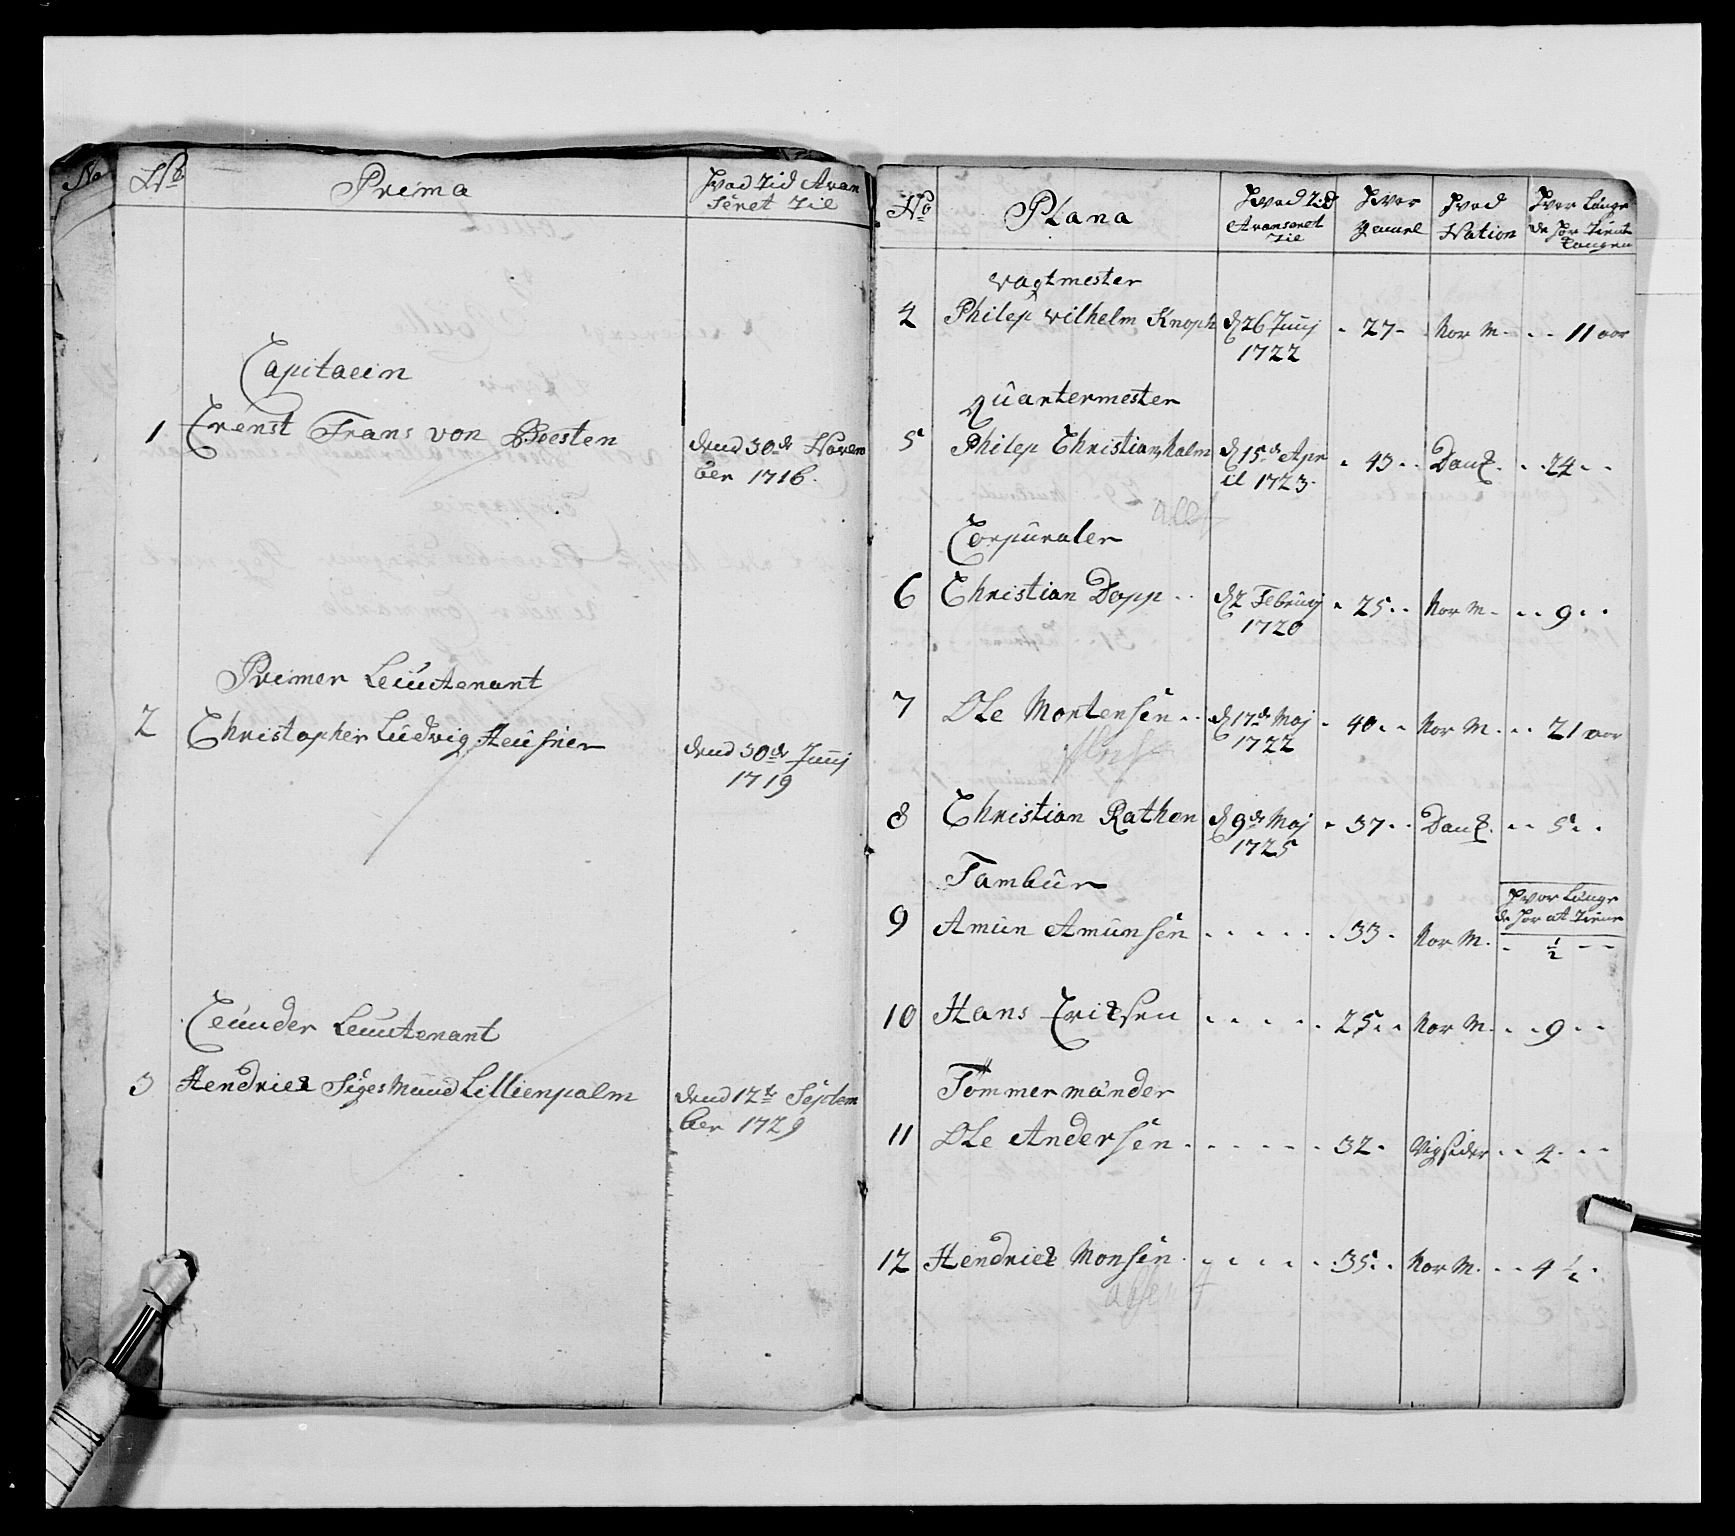 No
No Prima Hvad Tid Avan
seret Til
Capitaein
1 Ernst Frans von Beesten dend 30de Novem
ber 1716.
Premer Leuutenant
2 Christopher Ludvig Heusner dend 30de Junij
1719
Ceunder Leuutenant
3 Hendrick Siges Mund Lillienpalm dend 12te Septem
ber 1729
No Plana Hvad Tid
Avanseret
Til Hvor
Gamel Hvad
Nation Hvor Länge
de har tient
Kongen
Vagtmester
4 Philep Wilhelm Knoph d 26 Junij
1722 27 Nor M. 11 aar
Quartermester
5 Philep Christianholm d 15de Apr
il 1723. 43 Dansk. 24
Corpuraler
6 Christian Dopp d 2 Februarij
1720 25 Nor M. 9
7 Ole Mortensen d 17de Maj
1722 40 Nor M. 21 aar
8 Christian Rathen d 9de Maj
1725 37 Dansk. 5
Tambur
Hvor Länge
de har at tiene
9 Amun Amunsen 33 Nor M. ½
10 Hans Ericksen 25 Nor M. 9
Tömmermänder
11 Ole Andersen 32 Vigsider 4
12 Hendrick Monsen 35 Nor M. 4 ½
absent